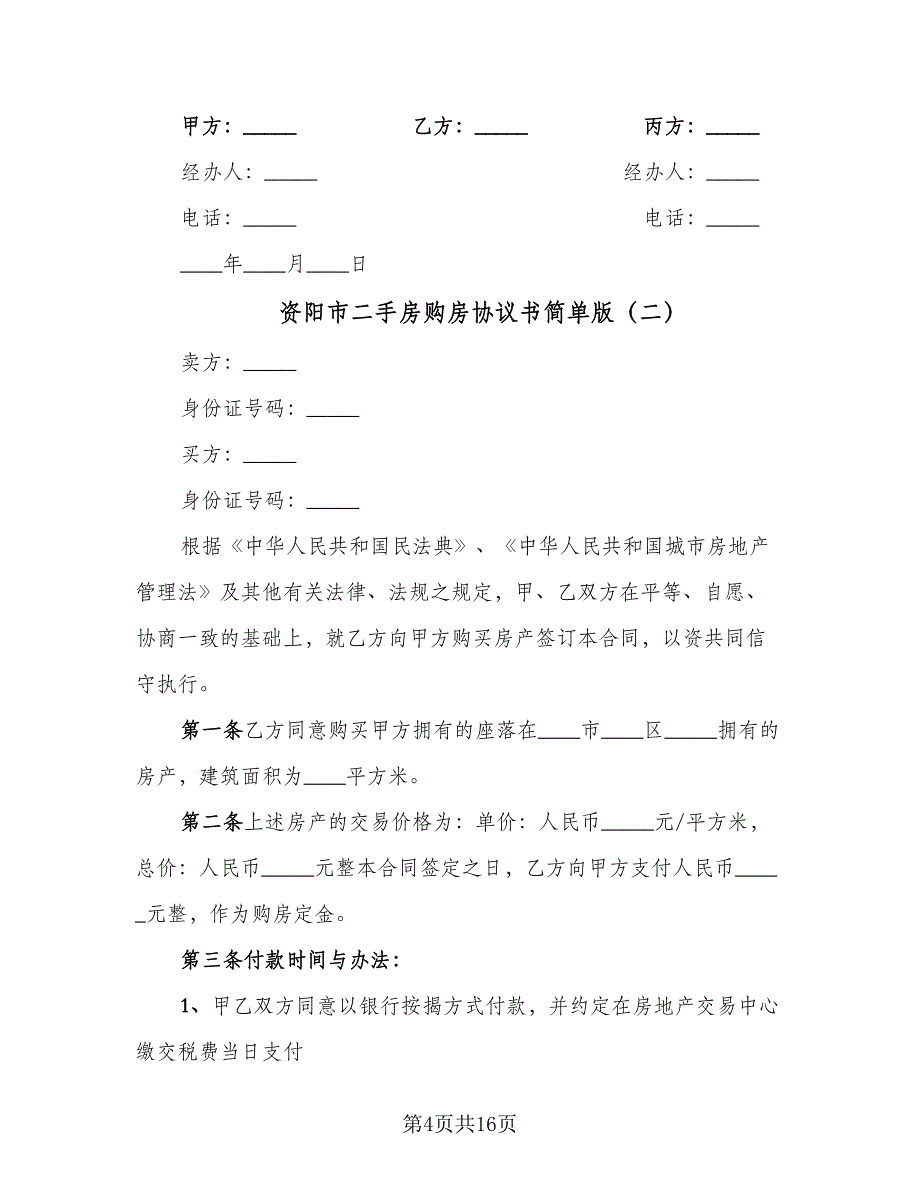 甲方：_____ 乙方：_____ 丙方：_____
经办人：_____ 经办人：_____
电话：_____ 电话：_____
____年____月____日
资阳市二手房购房协议书简单版（二）
卖方：_____
身份证号码：_____
买方：_____
身份证号码：_____
根据《中华人民共和国民法典》、《中华人民共和国城市房地产
管理法》及其他有关法律、法规之规定，甲、乙双方在平等、自愿、
协商一致的基础上，就乙方向甲方购买房产签订本合同，以资共同信
守执行。
第一条乙方同意购买甲方拥有的座落在____市____区_____拥有的
房产，建筑面积为____平方米。
第二条上述房产的交易价格为：单价：人民币_____元/平方米，
总价：人民币_____元整本合同签定之日，乙方向甲方支付人民币____
_元整，作为购房定金。
第三条付款时间与办法：
1、甲乙双方同意以银行按揭方式付款，并约定在房地产交易中心
缴交税费当日支付
第4页共16页